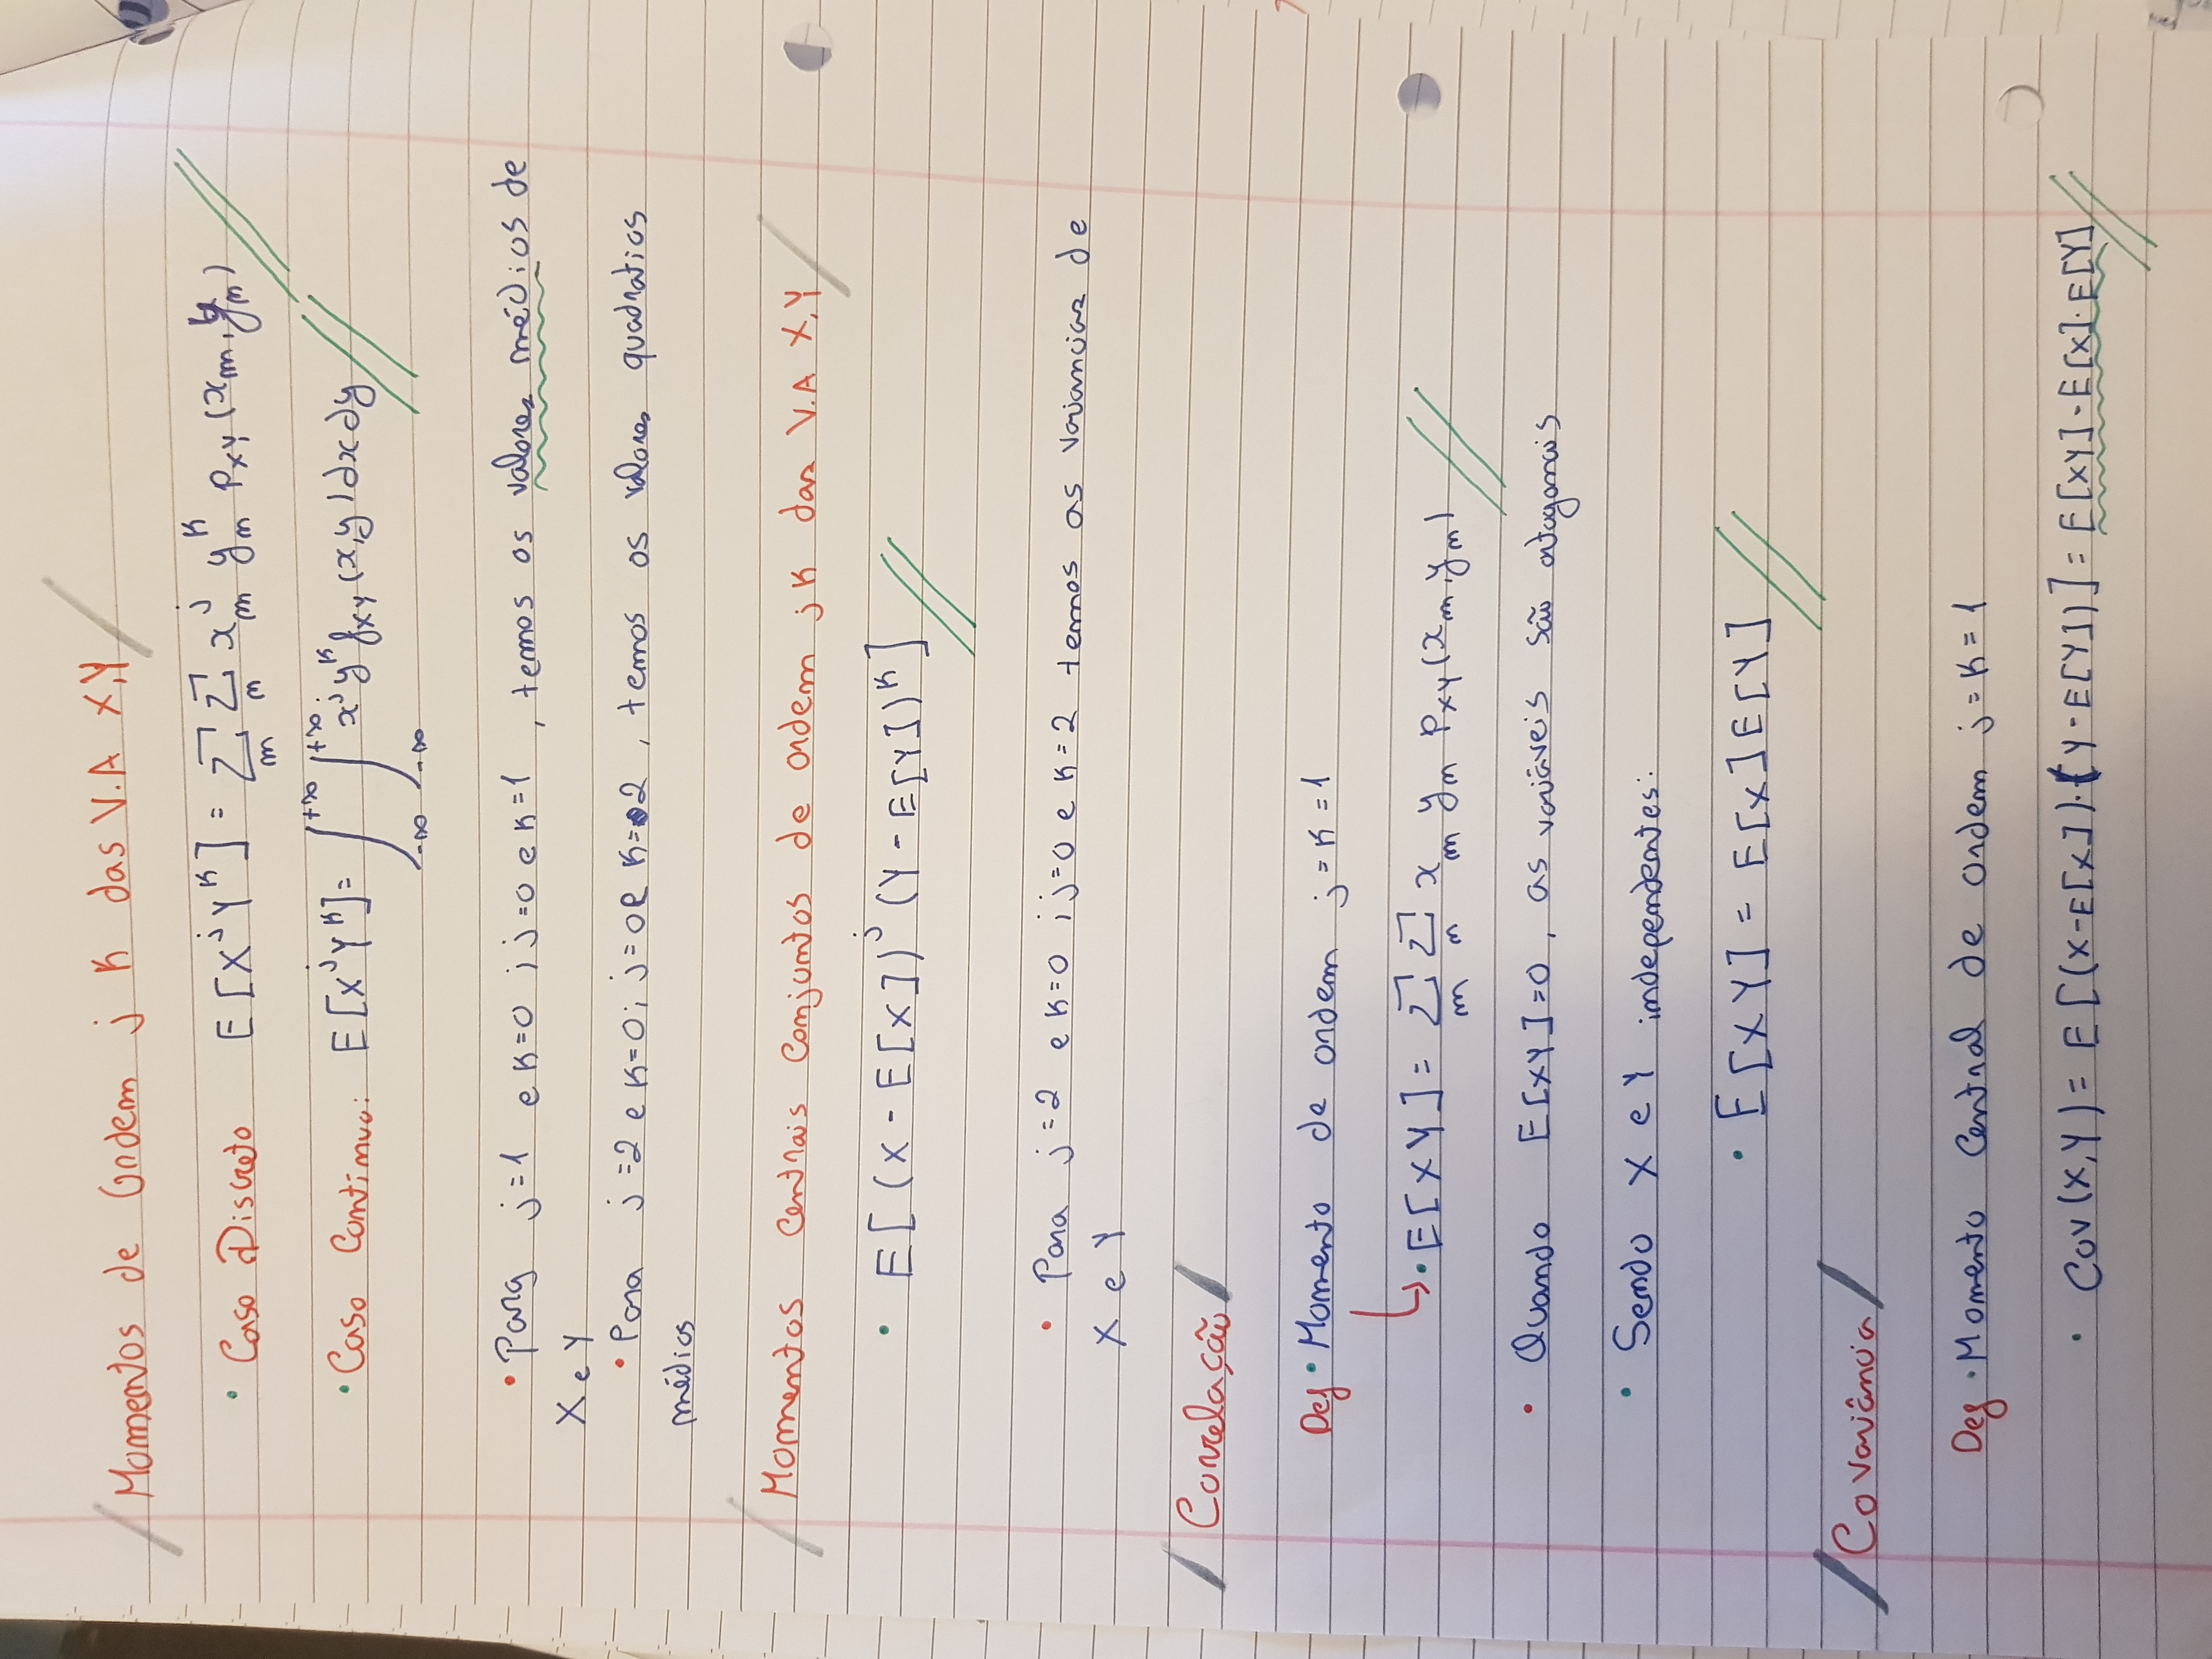 Momentos de Ordem j K das V.A X,Y
• Caso Discreto E[X^j Y^K] = Σ_m Σ_n x_m^j y_n^K P_XY(x_m, y_n)
• Caso Continuo: E[X^j Y^K] = ∫_{-∞}^{+∞} ∫_{-∞}^{+∞} x^j y^K f_XY(x,y)dxdy
• Para j=1 e K=0 ; j=0 e K=1 , temos os valores médios de
X e Y
• Para j=2 e K=0; j=0e K=2 , temos os valores quadratios
médios
Momentos Centrais Conjuntos de ordem j K das V.A X,Y
• E[(X - E[X])^j (Y - E[Y])^K]
• Para j=2 e K=0 ; j=0 e K=2 temos as variancias de
X e Y
Correlação
Def • Momento de ordem j = K = 1
• E[XY] = Σ_m Σ_n x_m y_n P_XY(x_m, y_n)
• Quando E[XY]=0, as variáveis são ortogonais
• Sendo X e Y independentes:
• E[XY] = E[X]E[Y]
Covariância
Def • Momento Central de ordem j = K = 1
• Cov(X,Y) = E[(X-E[X])·(Y-E[Y])] = E[XY] - E[X]·E[Y]